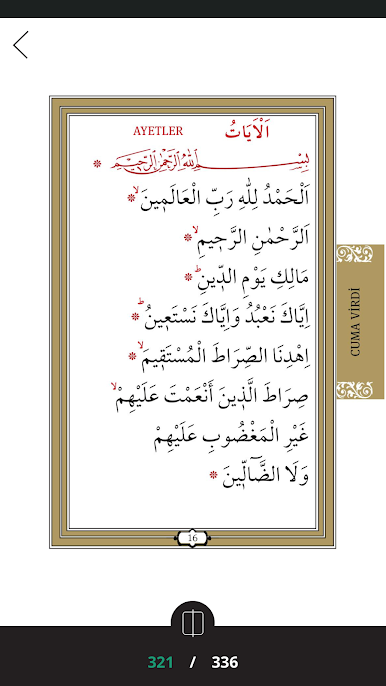 AYETLER اَلْاٰيَاتُ
بِسْمِ اللّٰهِ الرَّحْمٰنِ الرَّحِيمِ ❊
اَلْحَمْدُ لِلّٰهِ رَبِّ الْعَالَمِينَۙ ❊
اَلرَّحْمٰنِ الرَّحِيمِۙ ❊
مَالِكِ يَوْمِ الدِّينِۜ ❊
اِيَّاكَ نَعْبُدُ وَاِيَّاكَ نَسْتَعِينُۜ ❊
اِهْدِنَا الصِّرَاطَ الْمُسْتَقِيمَۙ ❊
صِرَاطَ الَّذِينَ أَنْعَمْتَ عَلَيْهِمْۙ
غَيْرِ الْمَغْضُوبِ عَلَيْهِمْ
وَلَا الضَّٓالِّينَ ❊
CUMA VİRDİ
16
321 / 336